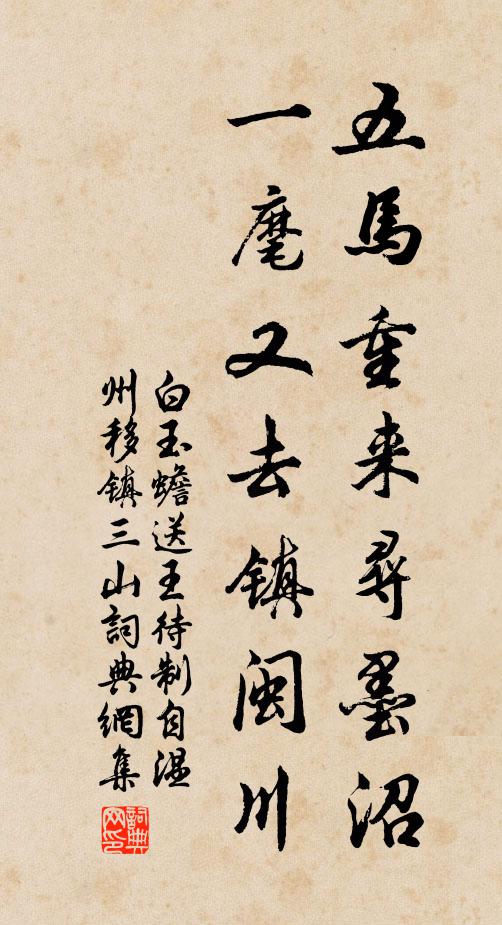 五馬重来尋墨沼
一麾又去鎮閩川
白玉蟾送王待制自温
州移鎮三山詞典網集
詞典网印